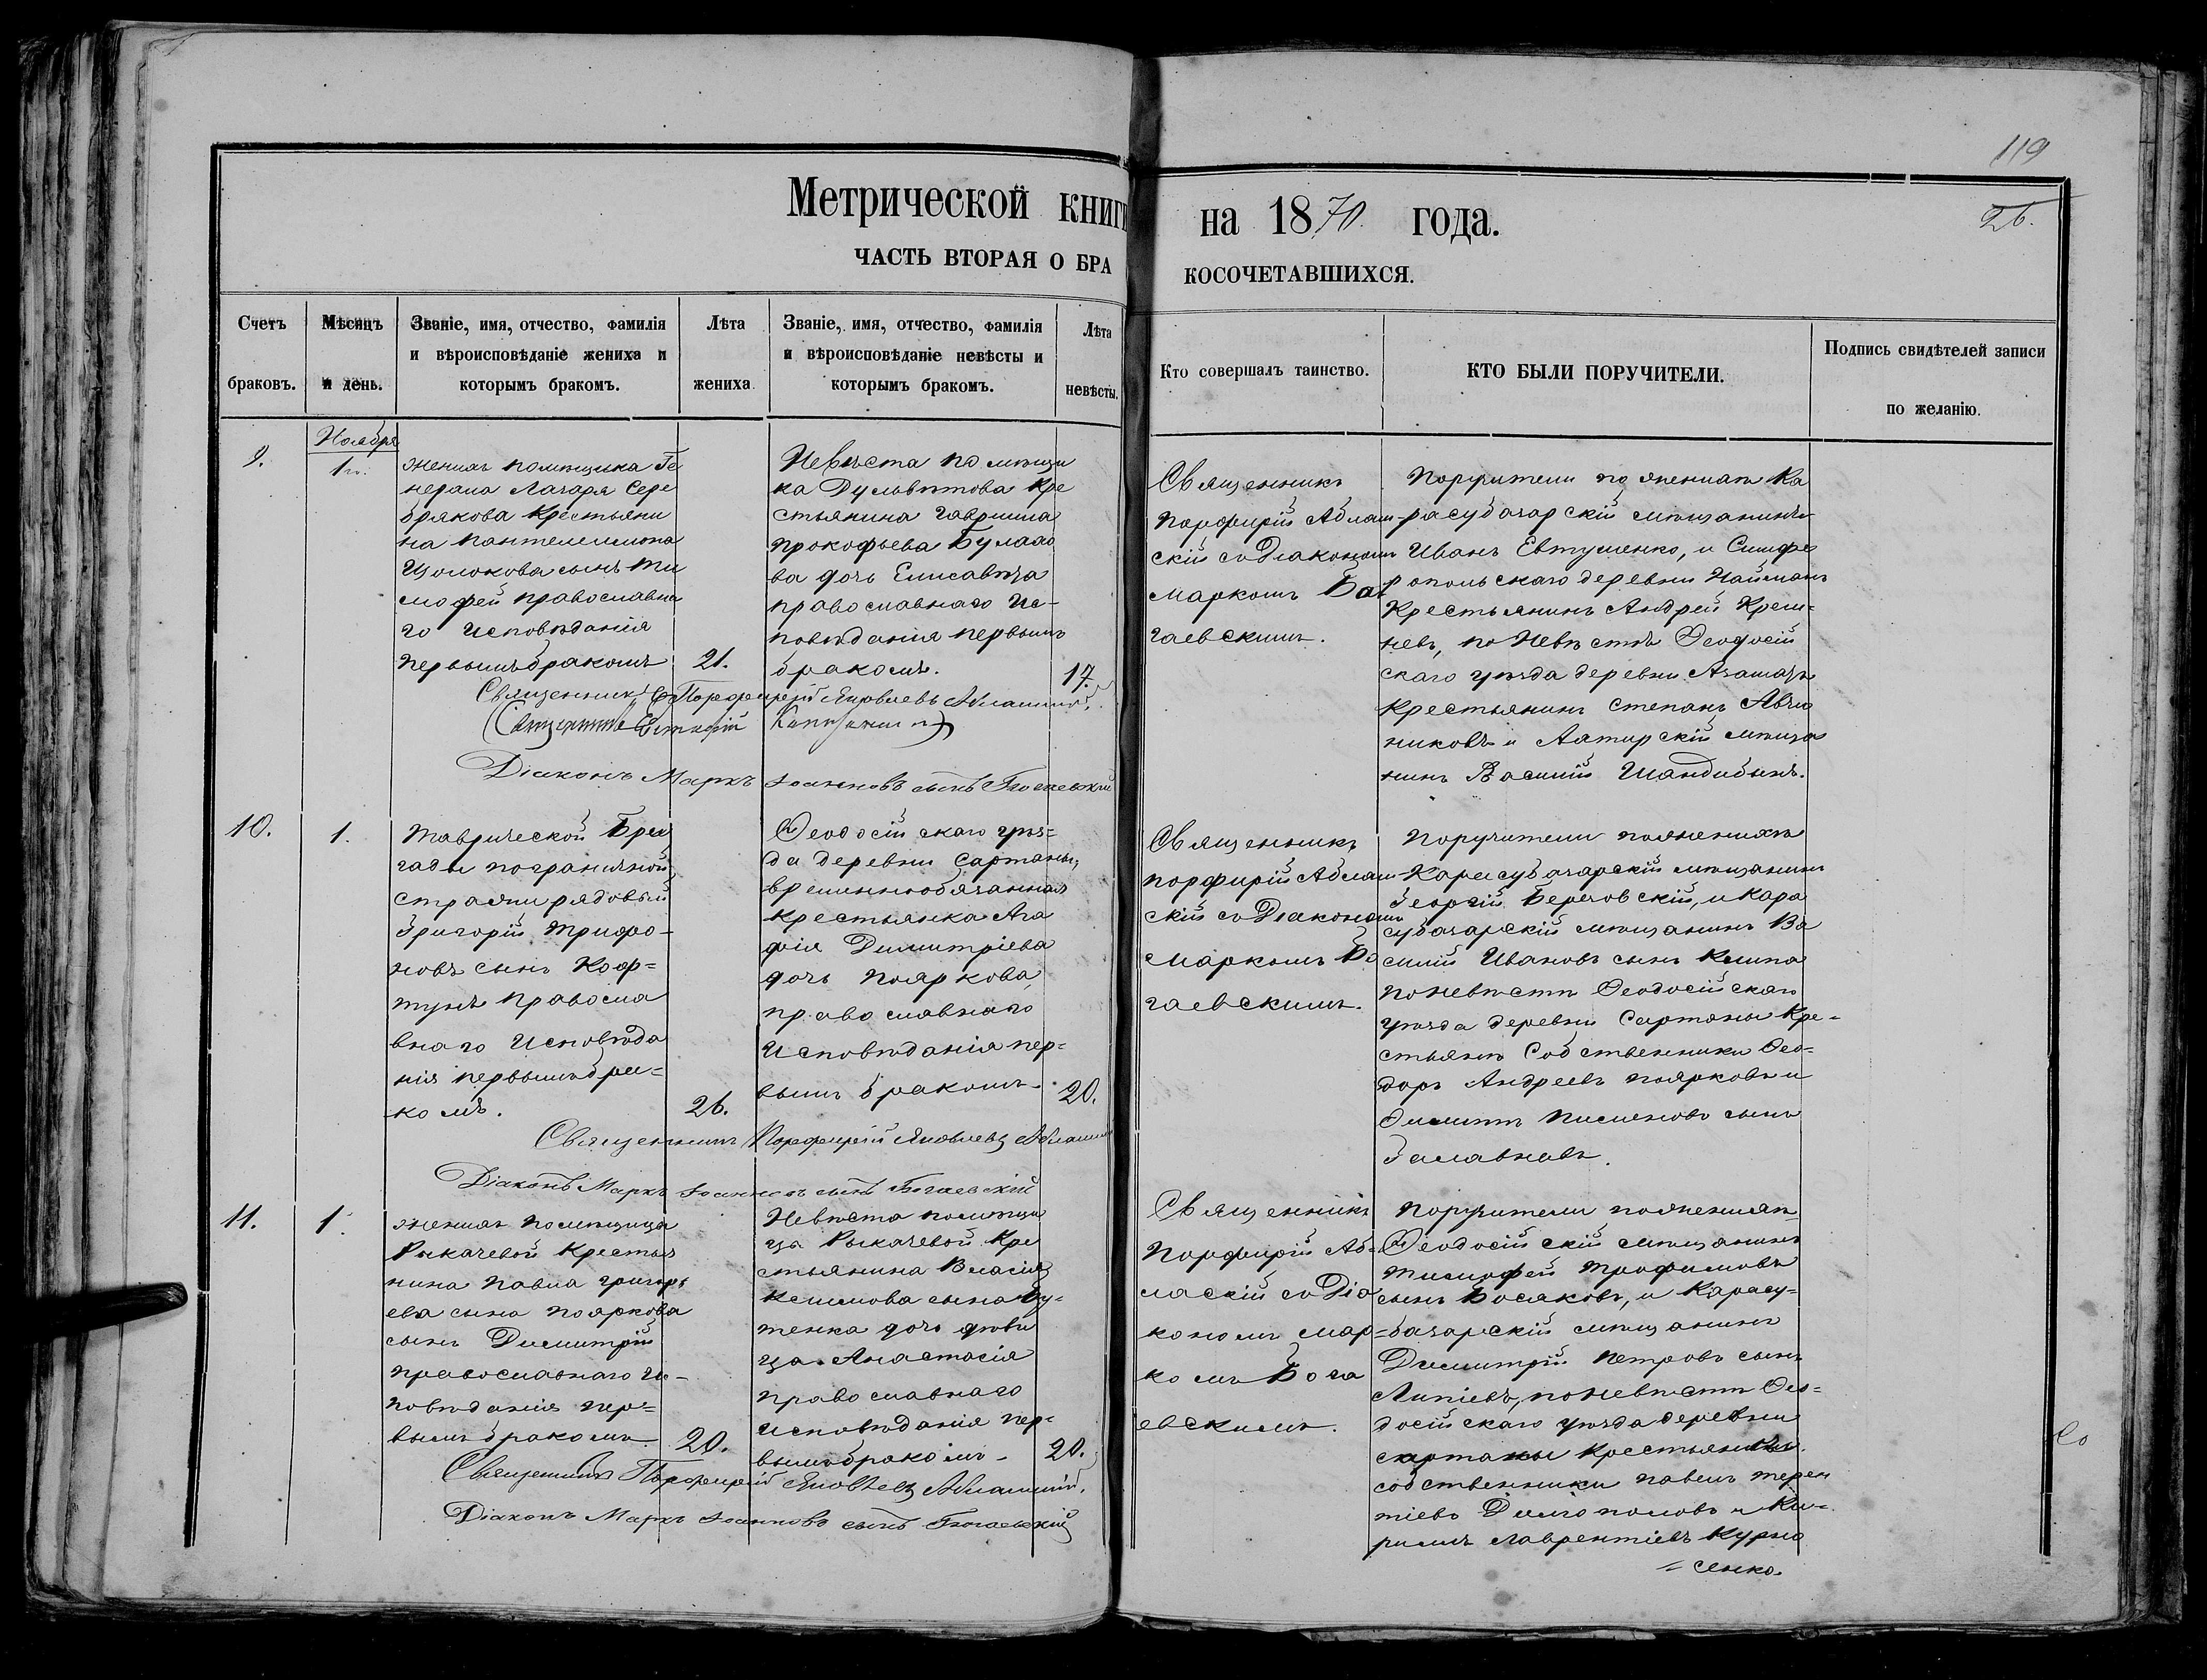 119
Метрической книги на 1870 года.
26.
ЧАСТЬ ВТОРАЯ О БРАКОСОЧЕТАВШИХСЯ.
Счетъ браковъ.
Мѣсяцъ и день.
Званіе, имя, отчество, фамилія
и вѣроисповѣданіе жениха и
которымъ бракомъ.
Лѣта жениха
Званіе, имя, отчество, фамилія
и вѣроисповѣданіе невѣсты и
которымъ бракомъ.
Лѣта невѣсты.
Кто совершалъ таинство.
КТО БЫЛИ ПОРУЧИТЕЛИ.
Подпись свидѣтелей записи
по желанію.
Ноября
9.
1го.
женихъ помѣщика Ге
нерала Лазаря Сере
брякова Крестьяни
на Пантелеимона
Щолокова сынъ Ти
мофей православна
го Исповѣданія
первымъ бракомъ
21.
Невѣста помѣщи
ка Дульвѣтова Кре
стьянина Гавриила
Прокофьева
ва дочь Елисавѣта
православнаго Ис-
повѣданія первымъ
бракомъ.
17.
Священникъ
Порфирій Аблаш-
скій съ Діакономъ
Маркомъ Бог
гаевскимъ.
Поручители по жениху Ка
расубазарскій мѣщанинъ
Иванъ Евтушенко, и Симфе
ропольскаго деревни Найманъ
Крестьянинъ Андрей Креш-
невъ, по Невѣстѣ Феодосій
скаго уѣзда деревни Азаматъ
Крестьянинъ Степанъ
никовъ и мѣща
нинъ Василій Шандыбинъ.
Священникъ Порфирій Яковлевъ
Діаконъ Маркъ Іоанновъ сынъ Богаевскій
10.
1.
Таврической Бри
гады пограничной
стражи рядовый
Григорій Трифо-
новъ сынъ Кор=
тунъ Правосла
внаго Исповѣда
нія первымъ бра=
комъ.
26.
Феодосійскаго уѣз=
да деревни Сартаны,
временнообязанная
крестьянка Ага
фія Димитріева
дочь Пояркова,
православнаго
Исповѣданія пер=
вымъ бракомъ.
20.
Священникъ
Порфирій Аблаш-
скій съ Діакономъ
Маркомъ Бо
гаевскимъ.
Поручители по жениху
Карасубазарскій мѣщанинъ
Георгій Березовскій, и Кара
субазарскій мѣщанинъ Ва
силій Ивановъ сынъ Клипа
по Невѣстѣ Феодосійскаго
уѣзда деревни Сартаны Кре=
стьяне Собственники Фео-
доръ Андреевъ Поярковъ и
сынъ
Священникъ Порфирій Яковлевъ
Діаконъ Маркъ Іоанновъ сынъ Богаевскій
11.
1.
женихъ помѣщицы
Рыкачевой Крестья
нина Павла Григорь
ева сына Пояркова
сынъ Димитрій
православнаго Ис-
повѣданія пер=
вымъ бракомъ
20.
Невѣста помѣщи
цы Рыкачевой Кре
стьянина Власія
Климова сына Бу-
тенка дочь дѣви
ца Анастасія
православнаго
Исповѣданія пер-
вымъ бракомъ
20.
Священникъ
Порфирій Аб-
ласкій съ Діа
кономъ Мар=
комъ Бога
евскимъ.
Поручители по жениху
Феодосійскій мѣщанинъ
Тимофей Трофимовъ
сынъ Босяковъ, и Карасу-
базарскій мѣщанинъ
Димитрій Петровъ сынъ
Липіевъ, по Невѣстѣ Фео=
досійскаго уѣзда деревни
Сартаны Крестьяне
собственники Павелъ Терен
тіевъ Долгополовъ и Ки-
рилъ Лаврентіевъ Курно
=сенко.
Священникъ Порфирій Яковлевъ
Діаконъ Маркъ Іоанновъ сынъ Богаевскій